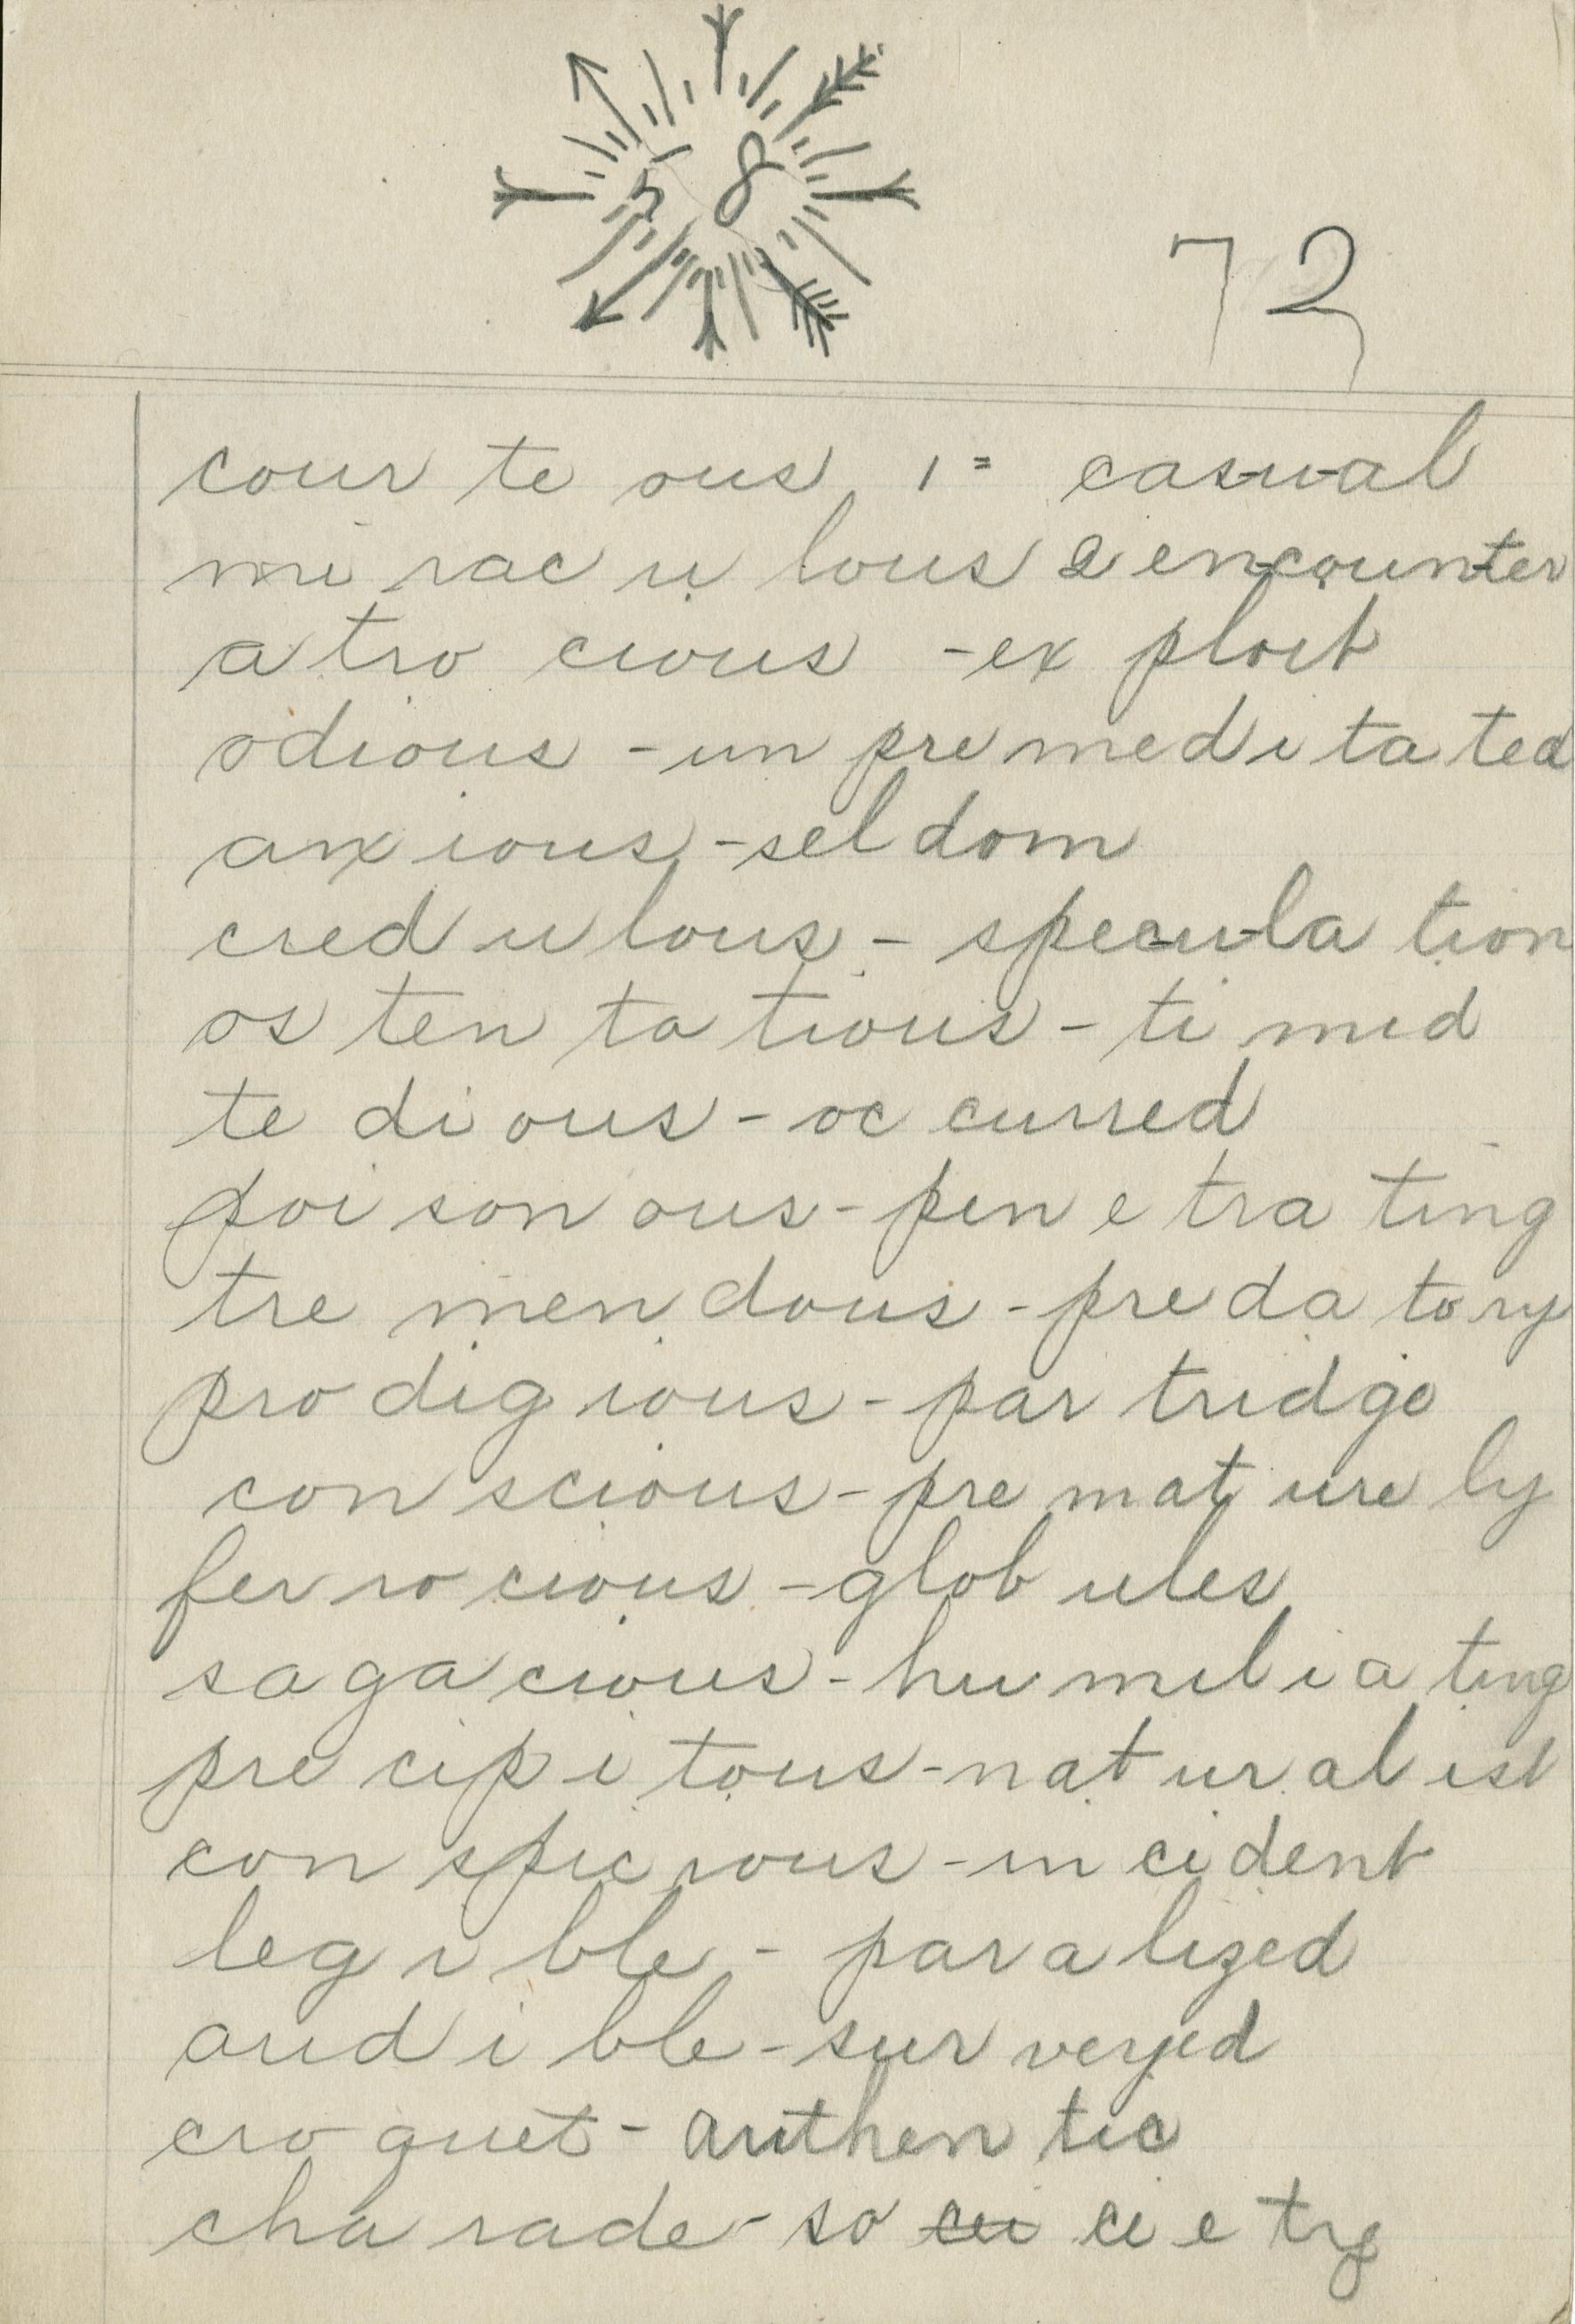 58
72
cour te ous 1= cas-u-al
mi rac u lous 2 en-coun-ter
a tro cious - ex ploit
odious - un pre med i ta ted
anx ious - sel dom
cred u lous - spec-u-la tion
os ten ta tious - ti mid
te di ous - oc curred
poi son ous - pen e tra ting
tre men dous - pre da to ry
pro dig ious - par tridge
con scious - pre mat ure ly
fer ro cious - glob ules
sa ga cious - hu mil i a ting
pre cip i tous - nat ur al ist
con spic ious - in cident
leg i ble - par a lized
aud i ble - sur veyed
cro quet - authen tic
cha rade - so cii ci e ty